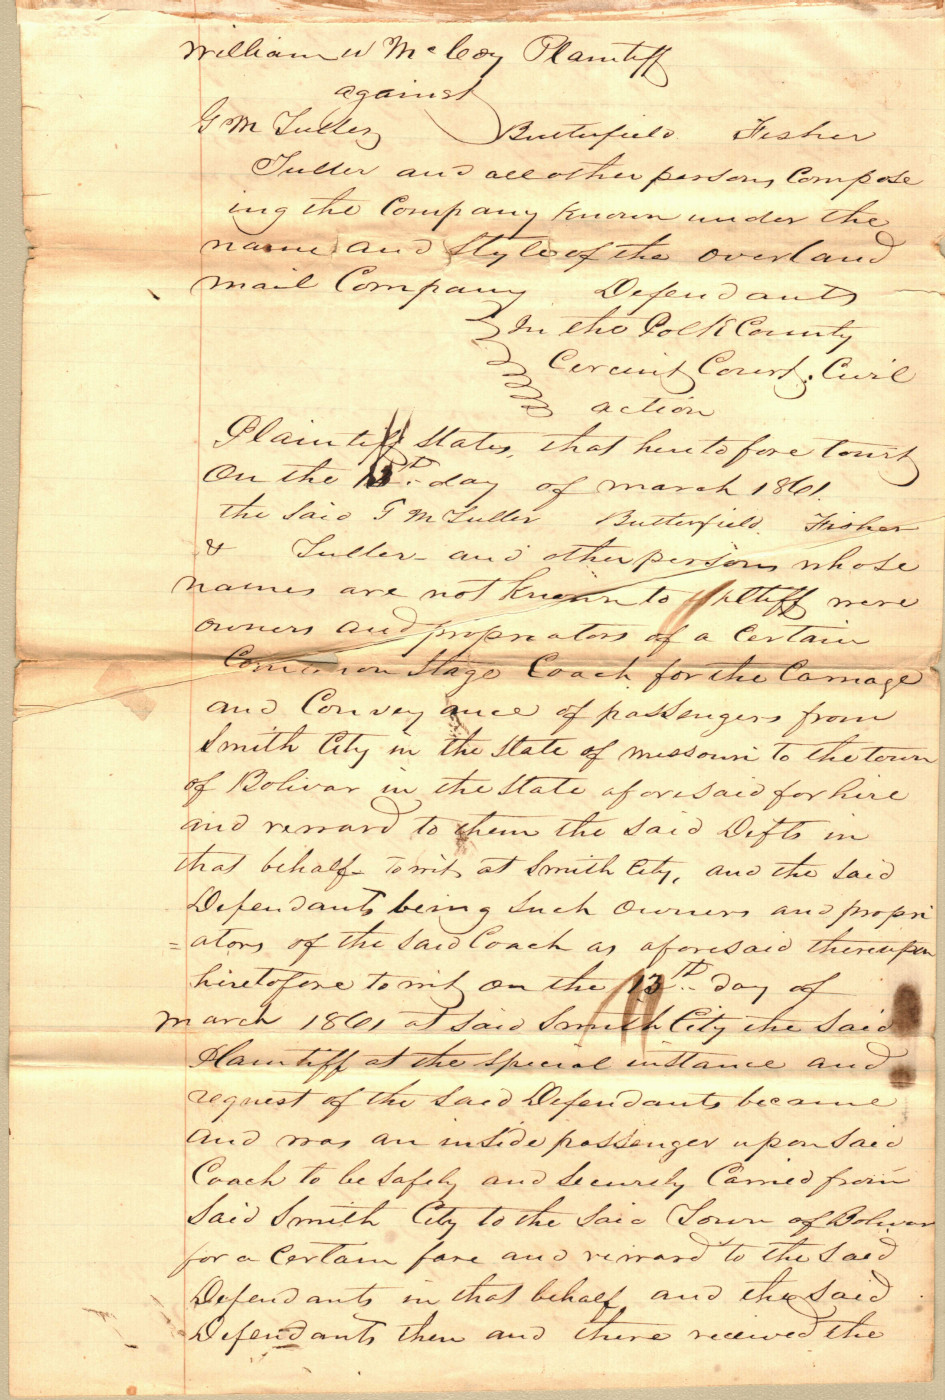 William W McCoy Plaintiff
against
G M Tuller Butterfield Fisher
Tuller and all other persons Compose
ing the Company Known under the
name and Style of the overland
mail Company Defendants
In the Polk County
Cercuit Court. Civil
action
Plaintiff States, that heretofore towit
On the 13th day of march 1861.
the Said G M Tuller Butterfield. Fisher
& Tuller and other persons whose
names are not Known to Pltiff were
owners and propriators of a Certain
Common Stage Coach for the Carriage
and Conveyance of passengers from
Smith City in the State of Missouri to the town
of Bolivar in the State aforesaid for hire
and reward to them the Said Defts in
that behalf towit at Smith City, and the Said
Defendants being Such Owners and propri
=ators of the Said Coach as aforesaid thereupon
heretofore towit on the 13th day of
March 1861 at Said Smith City the Said
Plaintiff at the Special instance and
request of the Said Defendants became
and was an inside passenger upon Said
Coach to be Safely and Securely Carried from
Said Smith City to the Said Town of Bolivar
for a Certain fare and reward to the Said
Defendants in that behalf and the Said
Defendants then and there received the